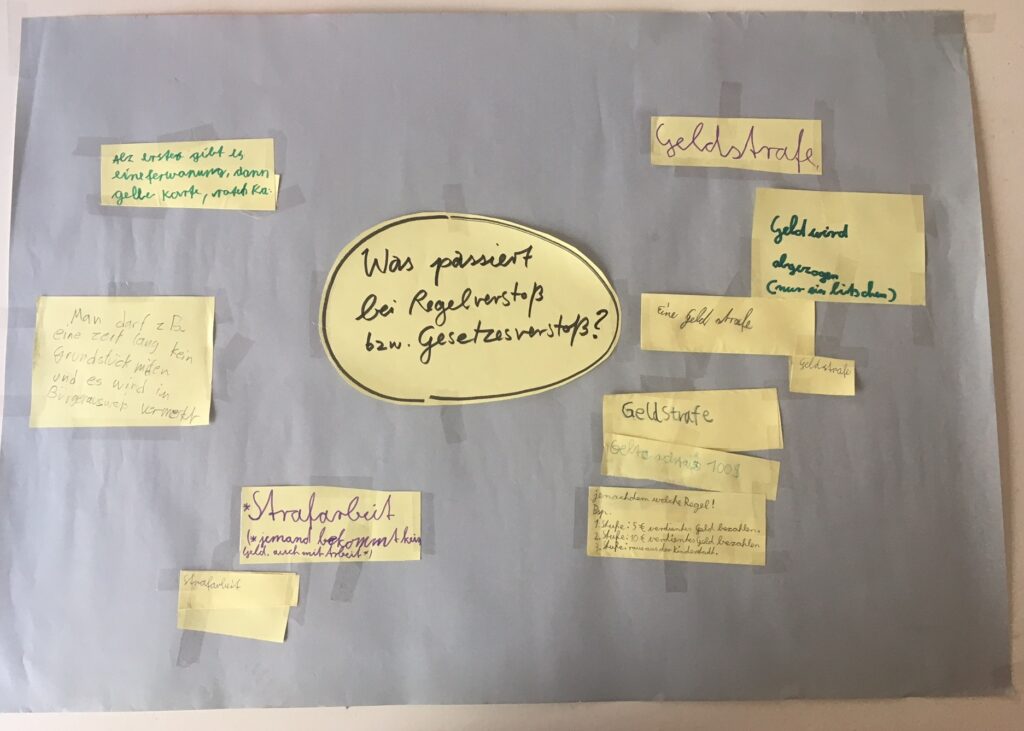 Geldstrafe
Als erster gibt es
eine ferwanung, dann
gelbe Karte,
Geld wird
abgezogen
(nur ein bitschen)
Was passiert
bei Regelverstoß
bzw. Gesetzesverstoß?
Man darf z.B.
eine zeit lang kein
Grundstück miten
und es wird im
Bürgerausweis vermerkt
eine Geld strafe
Geldstrafe
Geldstrafe
100$
*Strafarbeit
(*jemand bekommt kein
Geld, auch mit Arbeit*)
jenachdem welche Regel!
Bsp.
1. Stufe: 5 € verdientes Geld bezahlen.
2. Stufe: 10 € verdientes Geld bezahlen
3. Stufe: raus aus der Kinderstadt.
Strafarbeit